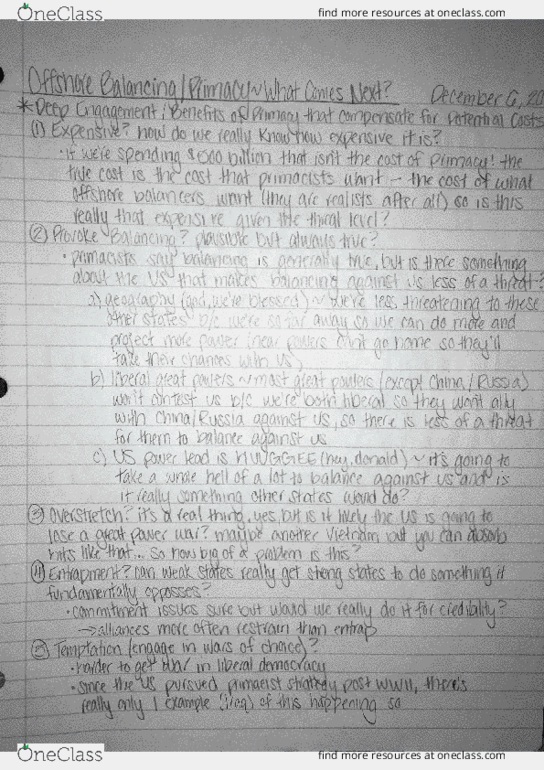 OneClass
find more resources at oneclass.com
Offshore Balancing/Primacy ~ What Comes Next? December 6, 20
* Deep Engagement: Benefits of Primacy that compensate for Potential Costs
(1) Expensive? how do we really know how expensive it is?
• if we're spending $600 billion that isn't the cost of primacy! the
true cost is the cost that primacists want - the cost of what
offshore balancers want (they are realists after all) so is this
really that expensive given the threat level?
(2) Provoke Balancing? plausible but always true?
• primacists say balancing is generally true, but is there something
about the US that makes balancing against us less of a threat?
a) geography (god, we're blessed) ~ we're less threatening to these
other states b/c we're so far away so we can do more and
project more power (near powers can't go home so they'll
take their chances with us)
b) liberal great powers ~ most great powers (except China/Russia)
won't contest us b/c we're both liberal so they won't ally
with China/Russia against us, so there is less of a threat
for them to balance against us
c) US power lead is HUUGGEE (hey, donald) ~ it's going to
take a whole hell of a lot to balance against us and is
it really something other states would do?
(3) Overstretch? it's a real thing, yes, but is it likely the US is going to
lose a great power war? maybe another Vietnam but you can absorb
hits like that... so how big of a problem is this?
(4) Entrapment? can weak states really get strong states to do something it
fundamentally opposes?
• commitment issues sure but would we really do it for credibility?
→ alliances more often restrain than entrap
(5) Temptation (engage in wars of choice)?
• harder to get war in liberal democracy
• since the US pursued primacist strategy post WWII, there's
really only 1 example (Iraq) of this happening so
OneClass
find more resources at oneclass.com